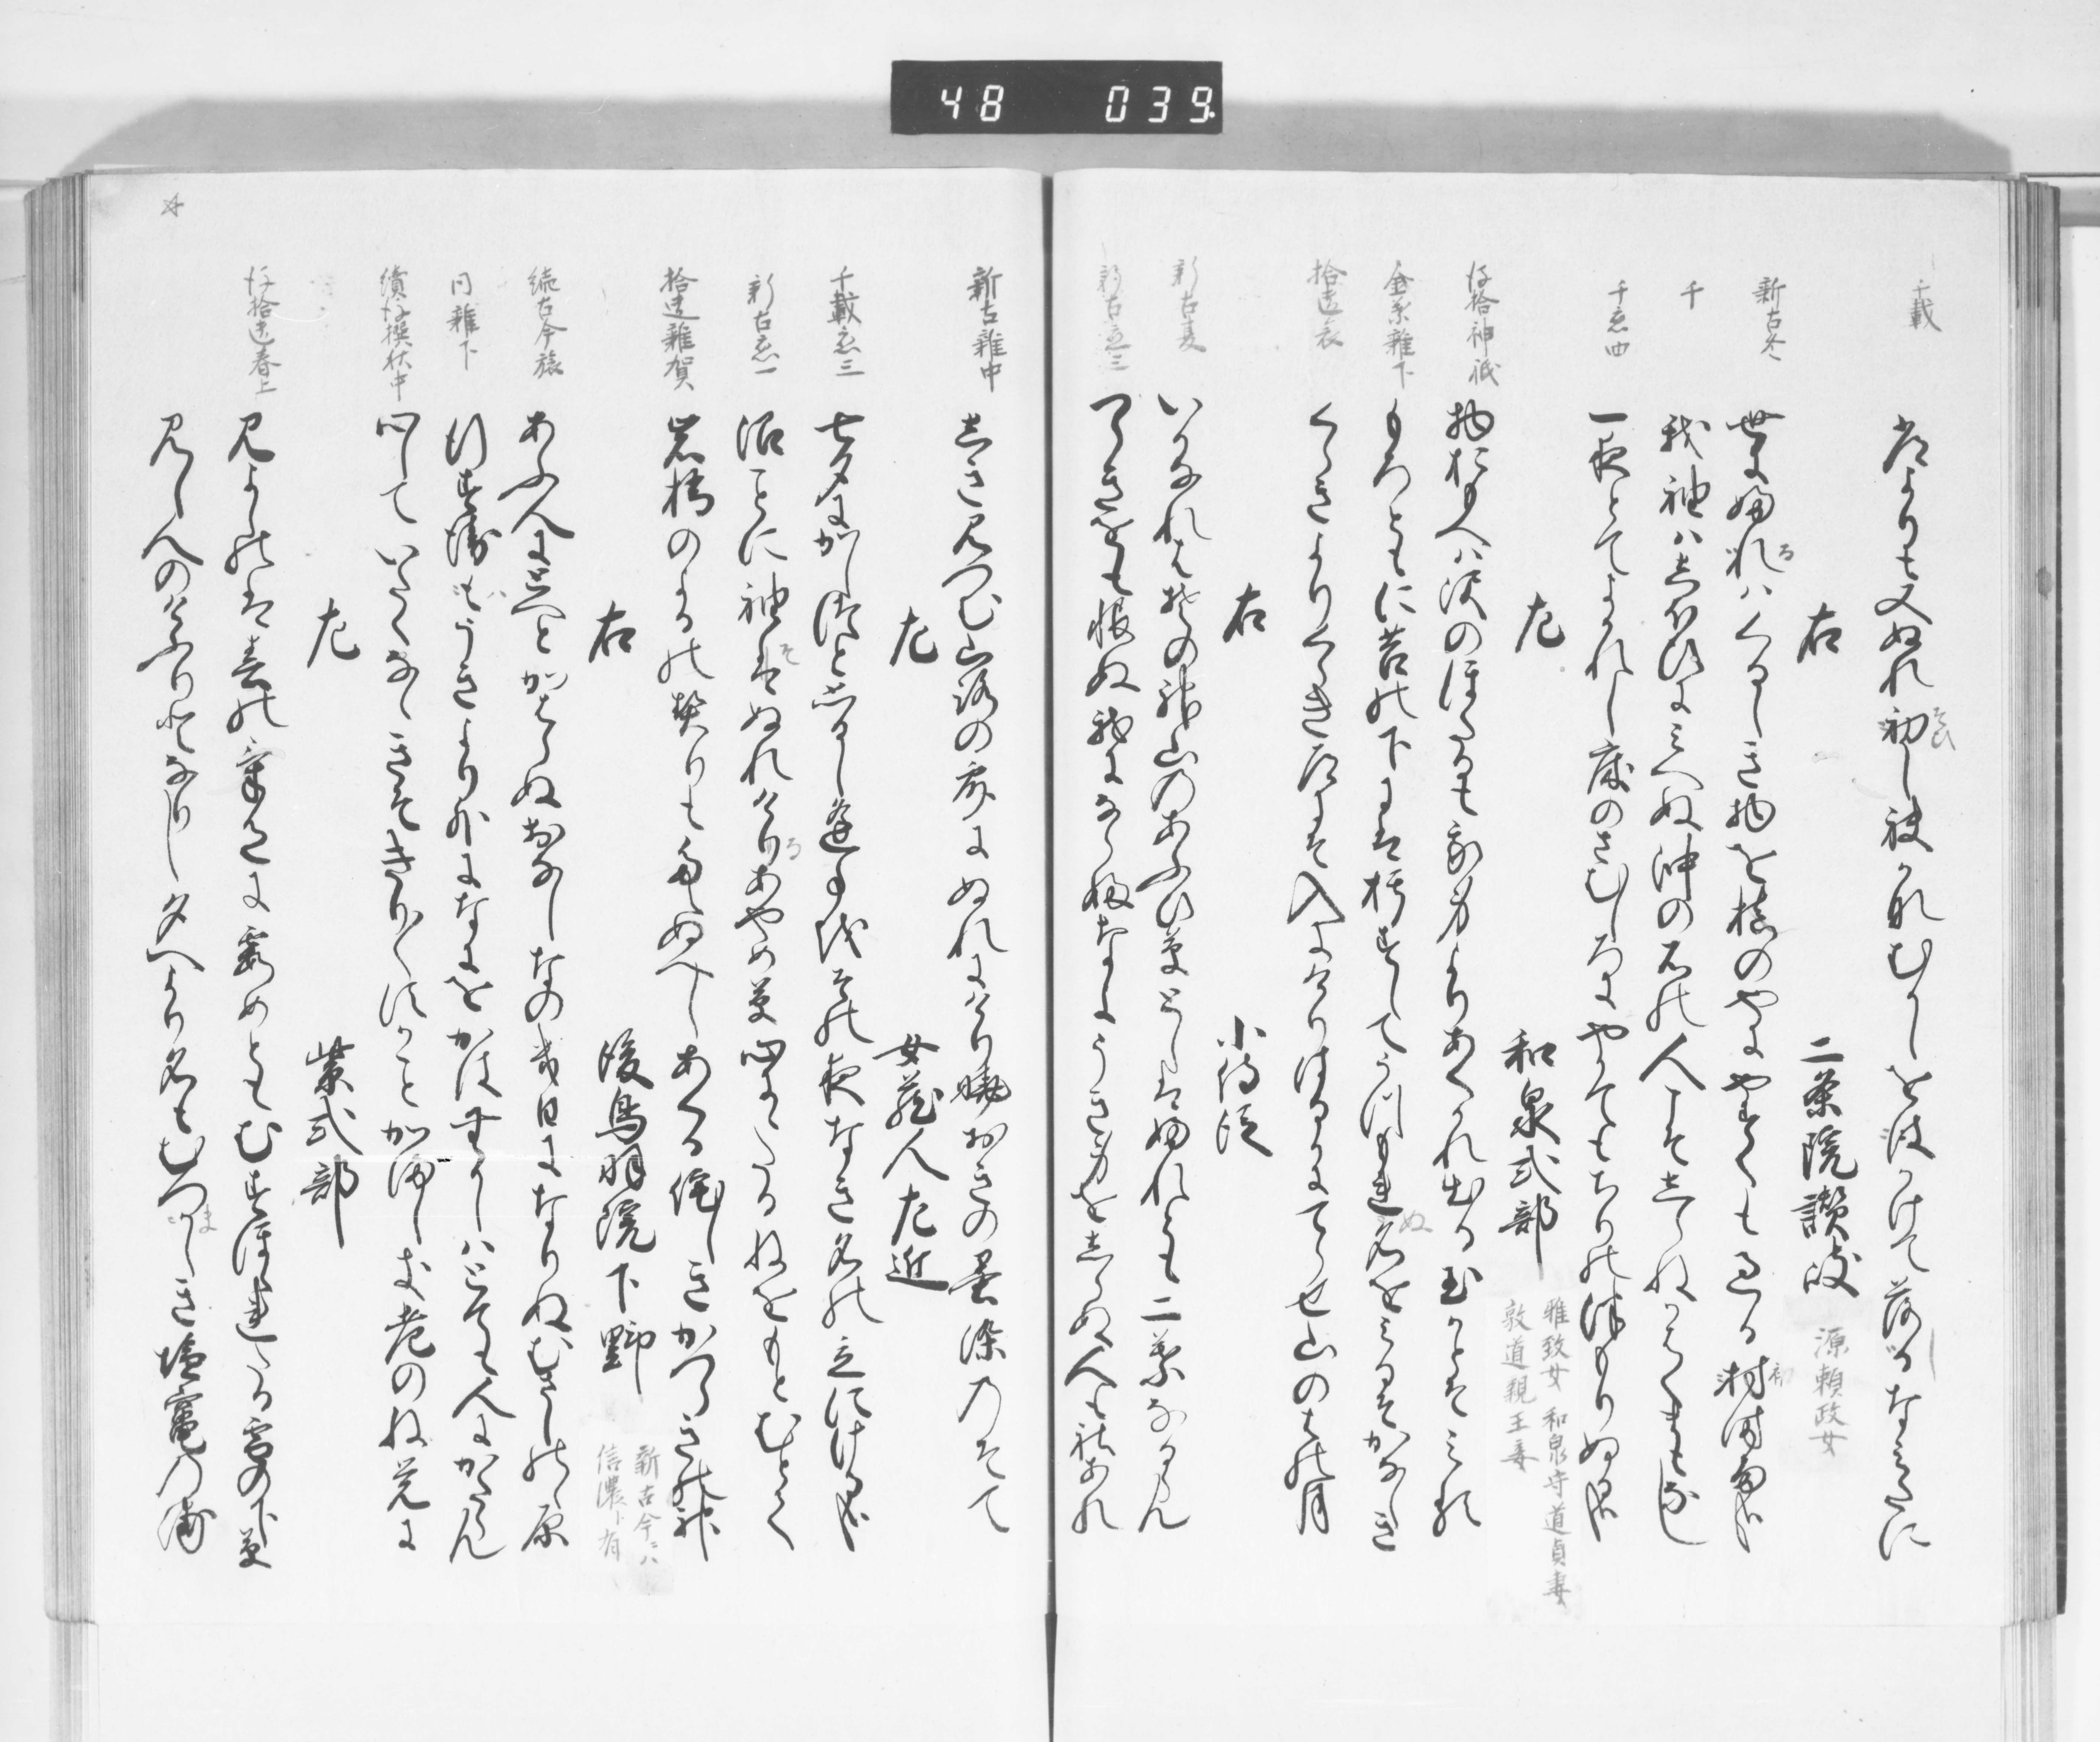 千載　常よりも又ぬれ初し袂かなむかしをかけて落るなみたに
右　二条院讃岐　源頼政女
新古冬　世に婦れはくるしき物を槙のやにやすくも過る村時雨哉
千　我袖ハしほひにみへぬ沖の石の人こそしらねかはくまもなし
千恋四　一夜とてよかれし床のさむしろにやかてもちりの積りぬる哉
左　和泉式部　雅致女　和泉守道貞妻
敦道親王妾
後拾神祇　物おもへハ沢のほたるも我身よりあくかれ出る玉かとそみる
金葉雑下　もろともに苔の下には朽すしてうつもれ名をみるそかなしき
拾遺哀　くらきよりくらき道にそ入にけりはるかにてらせ山のはの月
右　小侍従
新古夏　いかなれはその神山のあふひ草としは婦れとも二葉なるらん
新古恋三　つらきをも恨ぬ我にならふなようき身をしらぬ人も社あれ
新古雑中　しきみつむ山路の露にぬれにけり暁おきの墨染のそて
左　女蔵人左近
千載恋三　七夕にかしつと思し逢事を其夜なき名の立にける哉
新古恋一　沼ことに袖そぬれけりあやめ草心ににたるねをもとむとて
拾遺雑賀　岩橋のよるの契りもたえぬへしあくる侘しきかつらきの神
右　後鳥羽院下野　新古今ニハ
信濃ト有
続古今旅　あふ人にとへとかはらぬおなしなの幾日になりぬむさしの原
同雑下　行すゑもうきより外になにをかは　しハとても人にかたらん
續後撰秋中　心していたくなゝきそきりきりすかことかましき老のね覚に
左　紫式部
後拾遺春上　見よしのは春の気色に霞めともむすほほれたる雪の下草
見し人のけふりとなりし夕へより名もむつましき塩竈の浦
48　039